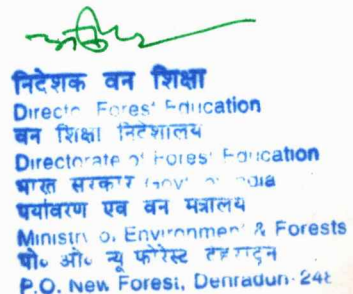 निदेशक वन शिक्षा
Directo Fores' Education
वन शिक्षा निदेशालय
Directorate of Fores' Education
भारत सरकार Gov' of India
पर्यावरण एव वन मंत्रालय
Ministry of Environment & Forests
पो० ओ० न्यू फोरेस्ट देहरादून
P.O. New Forest, Dehradun-248